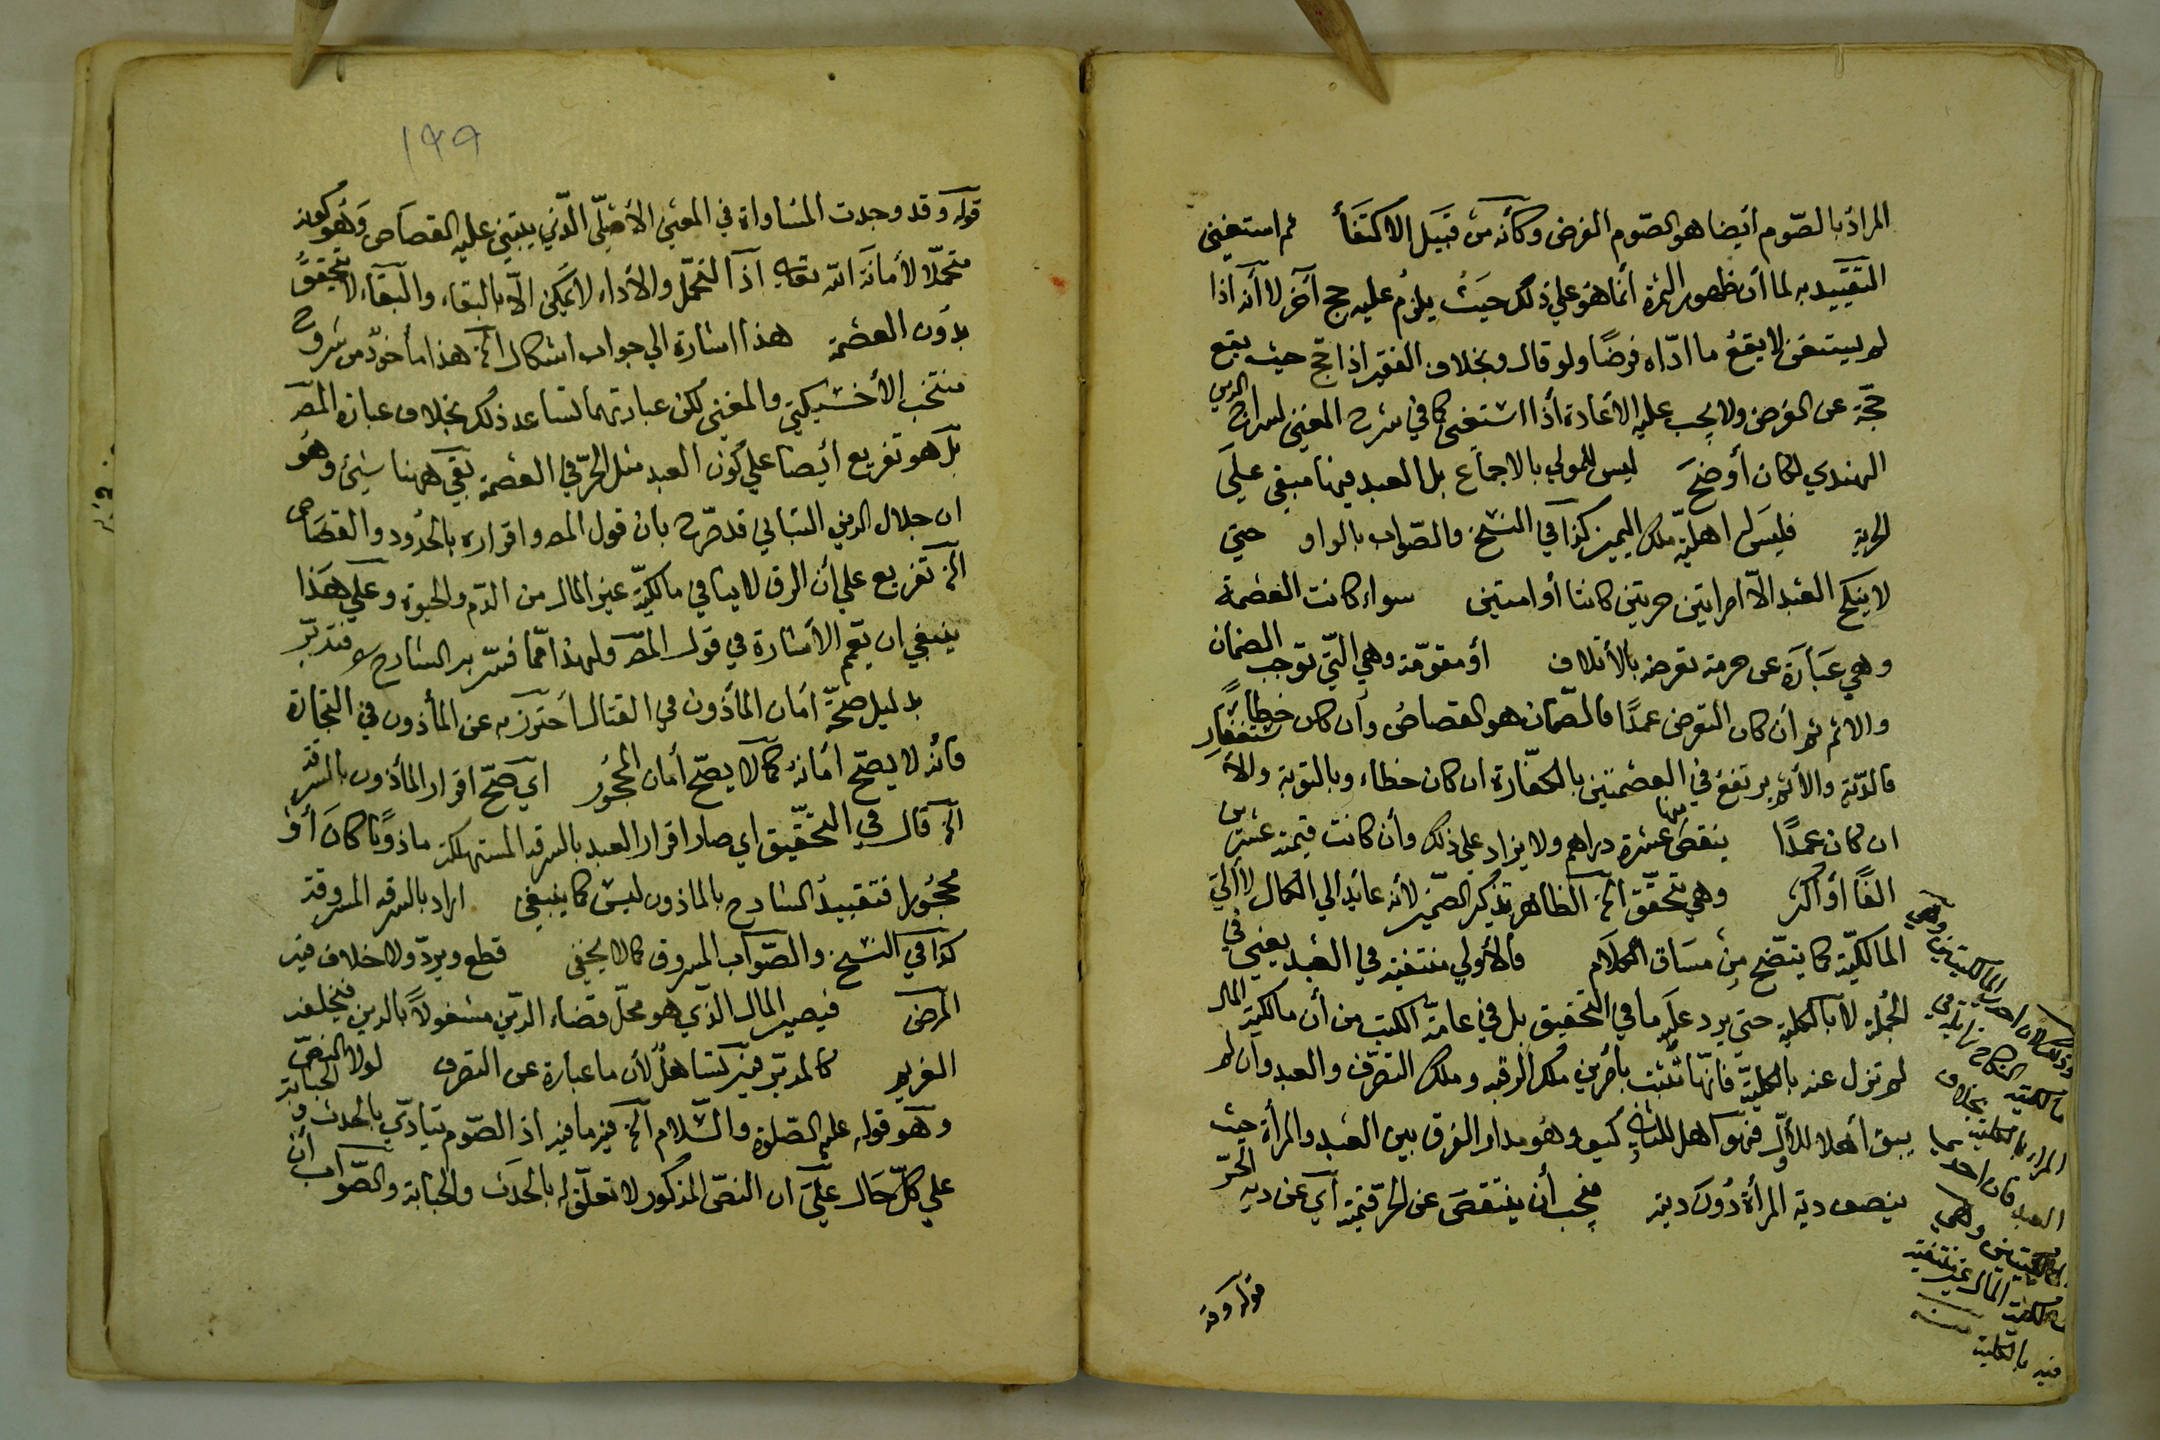 المراد بالصّوم أيضا هو الصّوم الفرض وكأنه من قبيل الاكتفأ ثم استغنى
التقييد به لما أن ظهور الثمرة أنما هو علي ذلك حيث يلزم عليه حج آخر لا أنه اذا
لم يستغن لا يقع ما ادّاه فرضًا ولو قال وبخلاف الفقير اذا حج حيث يقع
حجّة عن الفرض ولا يجب عليه الأعادة أذا استغني كما في شرح المغني لسراج الدين
الهندي لكان أوضح ليس للمولي بالاجماع بل العبد فيها مبقي علي
الحرية فليس له اهليّة ملك اليمين كذا في النسخ والصّواب بالواو حتي
لا ينكح العبد الّا امرأتين حرتين كانتا أو امتين سواء كانت العصمة
وهي عبارة عن حرمة تعرضه بالأتلاف أو مقوّمة وهي الّتي توجب الضمان
والاثم ثم أن كان التعرض عمدًا فالضّمان هو القصاص وأن كان خطاءً
فالدّية والأثم يرتفع في العصمتين بالكفّارة ان كان خطاء وبالتوبة والأستغفار
ان كان عمدًا ينقص منها عشرة دراهم ولا يزاد علي ذلك وأن كانت قيمته عشرين
الفًا أو أكثر وهي تحقّق الخ الظاهر تذكير الضمير لأنه عائد الي الكمال لا الي
المالكيّة كما يتضح من مساق الكلام فالأولي منتفية في العبد يعني في
الجملة لا بالكلية حتي يرد عليه ما في التحقيق بل في عامة الكتب من أن مالكية المال
لم تزل عنه بالكليّة فانّها تثبت بأمرين ملك الرقبة وملك التصرّف والعبد وأن لم
يبق أهلا للأوّل فهو أهل للثاني كيف وهو مدار الفرق بين العبد والمرأة حيث
ينصف دية المرأة دون ديته فيجب أن ينتقص عن الحرّ قيمته أي عن دية الحرّ
المالكيتين وهي
وذلك لان احدي
مالكية النكاح زايلة في
المراة بالكلية بخلاف
العبد فان احد
المالكيتين وهي
مالكية المال غير منتفية
فيه بالكلية منه
قوله وقد
١٩٩
قوله وقد وجدت المساواة في المعني الأصلي الّذي يبتني عليه القصاص وهو كونه
متحمّلا لأمانة الله تعالي اذ التحمّل والأداء لا يمكن الّا بالبقاء والبقاء لا يتحقق
بدون العصمة هذا اشارة الي جواب اشكال الخ هذا مأخوذ من شروح
منتخب الأخسيكتي والمغني لكن عبارتهما تساعد ذلك بخلاف عبارة المص
بل هو تفريع أيضا علي كون العبد مثل الحرّ في العصمة بقي ههنا شيئ وهو
ان جلال الدين التباني قد صّرح بان قول المص واقراره بالحدود والقصاص
الخ تفريع علي أن الرق لا ينافي مالكيّة غير المال من الدّم والحيوة وعلي هذا
ينبغي ان يعم الأشارة في قول المص ولهذا ممّا فسّر به الشارح فتدبّر
بدليل صحّة امان المأذون في القتال احترز به عن المأذون في التجارة
فأنه لا يصحّ أمانه كما لا يصحّ أمان المحجور اي صحّ اقرار المأذون بالسرقة
الخ قال في التحقيق اي صار اقرار العبد بالسرقة المستهلكة ماذونا كان أو
محجورا فتقييد الشارح بالماذون ليس كما ينبغي اراد بالسرقة المسروقة
كذا في النسخ والصّواب المسروق كما لا يخفي قطع ويردّ ولا خلاف فيه
المرض فيصير المال الّذي هو محلّ قضاء الدّين مشغولاً بالدين فيخلفه
الغريم كالمدبّر فيه تساهل لأن ما عبارة عن التصرف لولا النصّ
وهو قوله عليه الصّلوة والسّلام الخ فيه ما فيه اذ الصّوم يتأدّي بالحدث والجنابة
علي كلّ حال علي ان النصّ المذكور لا تعلّق له بالحدث والجنابة والصّواب أن